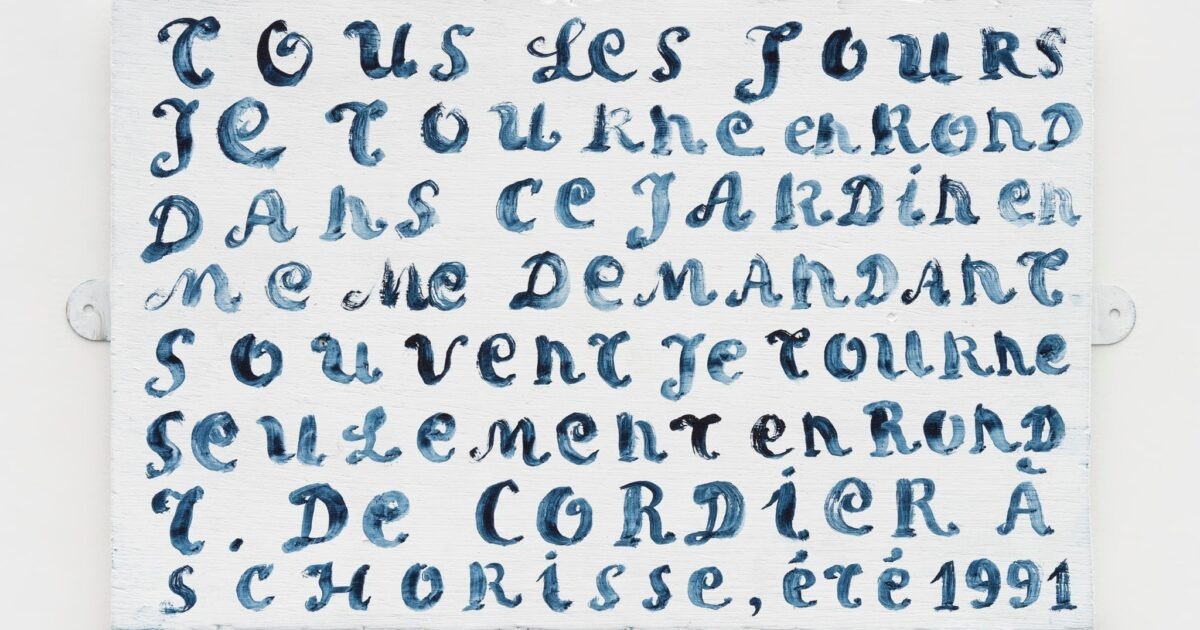 TOUS LES JOURS
JE TOURNE EN ROND
DANS CE JARDIN EN
ME ME DEMANDANT
SOUVENT JE TOURNE
SEULEMENT EN ROND
T. DE CORDIER À
SCHORISSE, été 1991